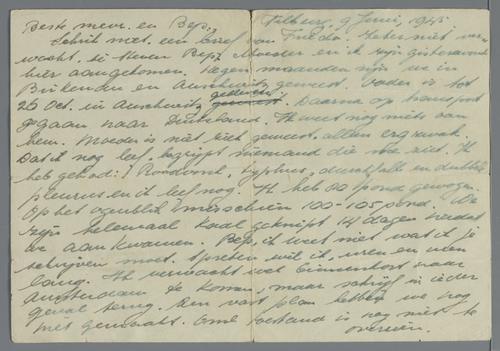 Tilburg, 9 Juni, 1945.
Beste mevr. en Bep,
Schrik niet. een brief van Frieda. Zeker niet ver
wacht. ie Moeder en ik zijn gisteravond
hier aangekomen. Negen maanden zijn we in
Birkenau en Auschwitz geweest. Vader is tot
26 Oct. in Auschwitz geweest. Daarna op transport
gegaan naar Duitsland. Ik weet nog niets van
hem. Moeder is niet ziek geweest, alleen erg zwak.
Dat ik nog leef, begrijpt niemand die me ziet. Ik
heb gehad: Roodvonk, typhus, durchfall en dubbele
pleuris en ik leef nog. Ik heb 80 pond gewogen.
Op het ogenblik 100-105 pond. We
zijn helemaal kaal geknipt 14 dagen nadat
we aankwamen. Bep, ik weet niet wat ik je
schrijven moet. Spreken wil ik, uren en uren
lang. Ik verwacht wel binnenkort naar
Amsterdam te komen, maar schrijf in ieder
geval terug. Een vast plan hebben we nog
niet gemaakt. Onze toestand is nog niet te
overzien.